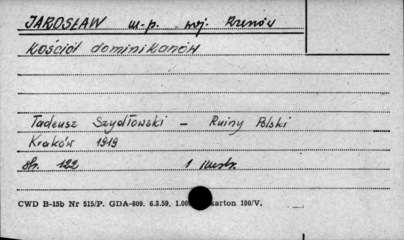 JAROSŁAW m-p. woj. Rzeszów
Kościół dominikanów
Tadeusz Szydłowski – Ruiny Polski
Kraków 1919
Str. 122 1 ilustr.
CWD B-15b Nr 515/P. GDA-809. 6.3.59. 1.00 karton 180/V.